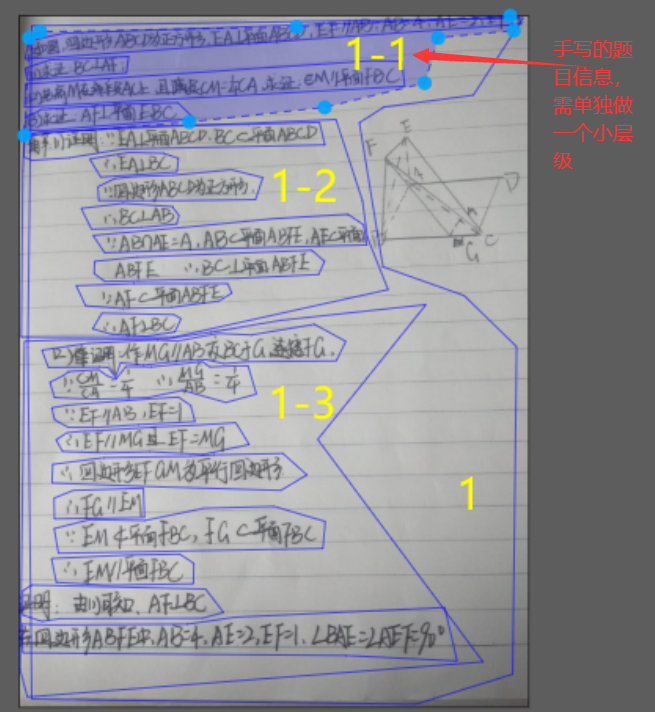 如图，四边形ABCD为正方形，EA⊥平面ABCD，EF//AB，AB=4，AE=2，EF
1-1
手写的题
目信息，
需单独做
一个小层
级
(1)求证 BC⊥AF；
求证：EM//平面FBC
(3)求证：AF⊥平面EBC
(1)证明：∵EA⊥平面ABCD，BC⊂平面ABCD
∴EA⊥BC
1-2
∵四边形ABCD为正方形，
∴BC⊥AB
∵AB∩AE=A，AB⊂平面ABFE，AE⊂平面
ABFE ∴BC⊥平面ABFE
∵AF⊂平面ABFE
∴AF⊥BC
E
F
D
M
G
C
作MG//AB交BC于G，连接FG，
∵CM/CA=1/4 ∴MG/AB=1/4
1-3
∵EF//AB，EF=1
∴EF//MG且EF=MG
∴四边形EFGM为平行四边形
∴FG//EM
1
∵EM⊄平面FBC，FG⊂平面FBC
∴EM//平面FBC
证明：由(1)可知，AF⊥BC
在四边形ABFE中，AB=4，AE=2，EF=1，∠BAE=∠AEF=90°